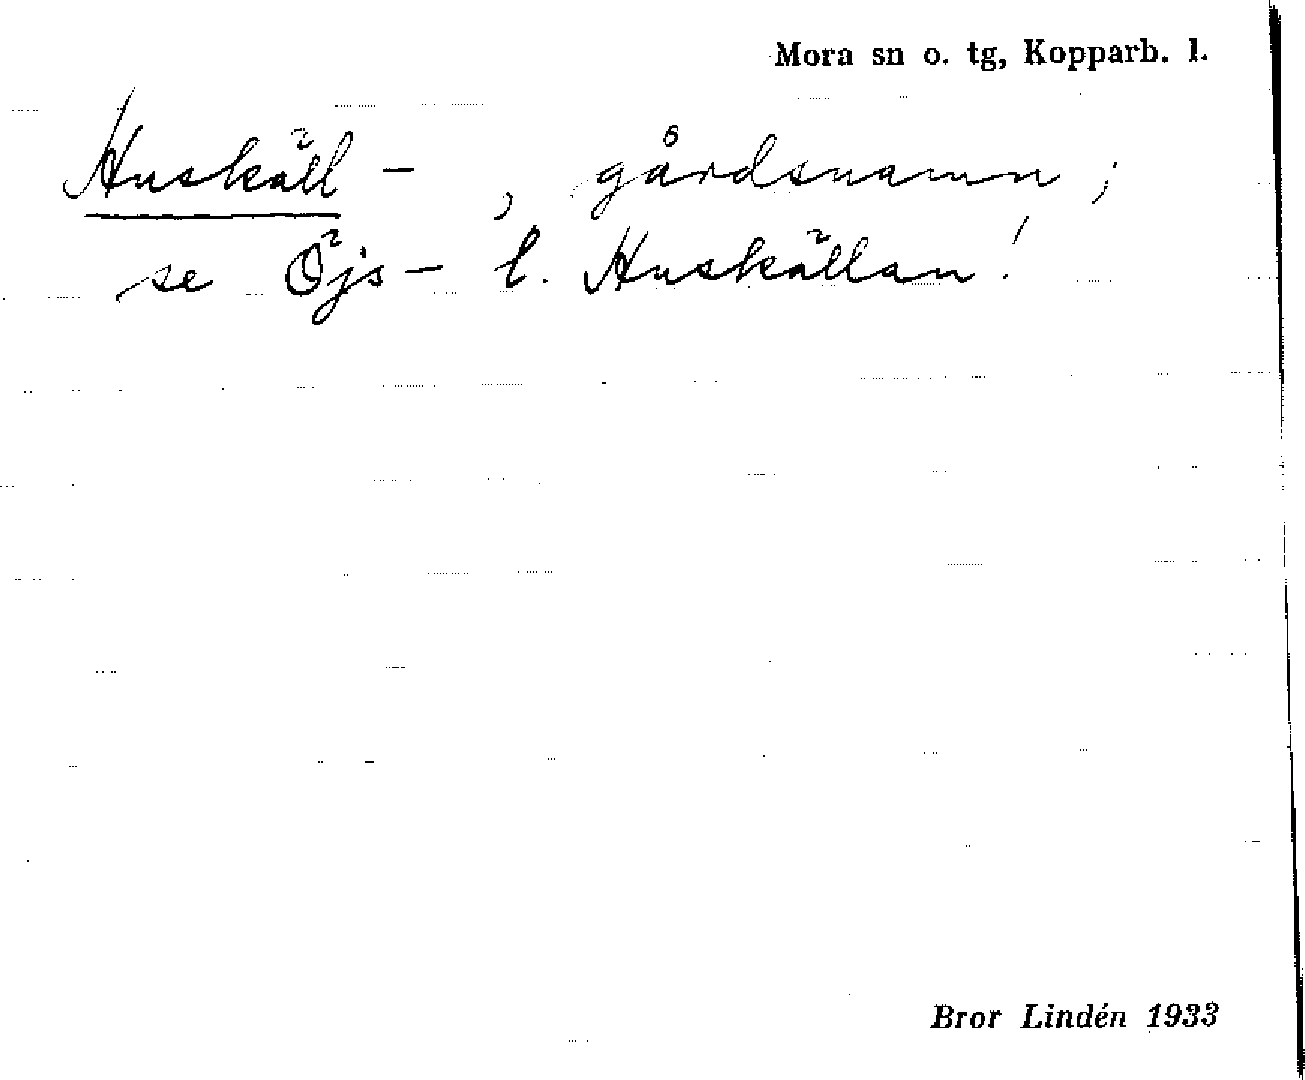 Mora sn o. tg, Kopparb. l.
Huskäll - , gårdsnamn ;
se Öjs - l. Huskällan !
Bror Lindén 1933